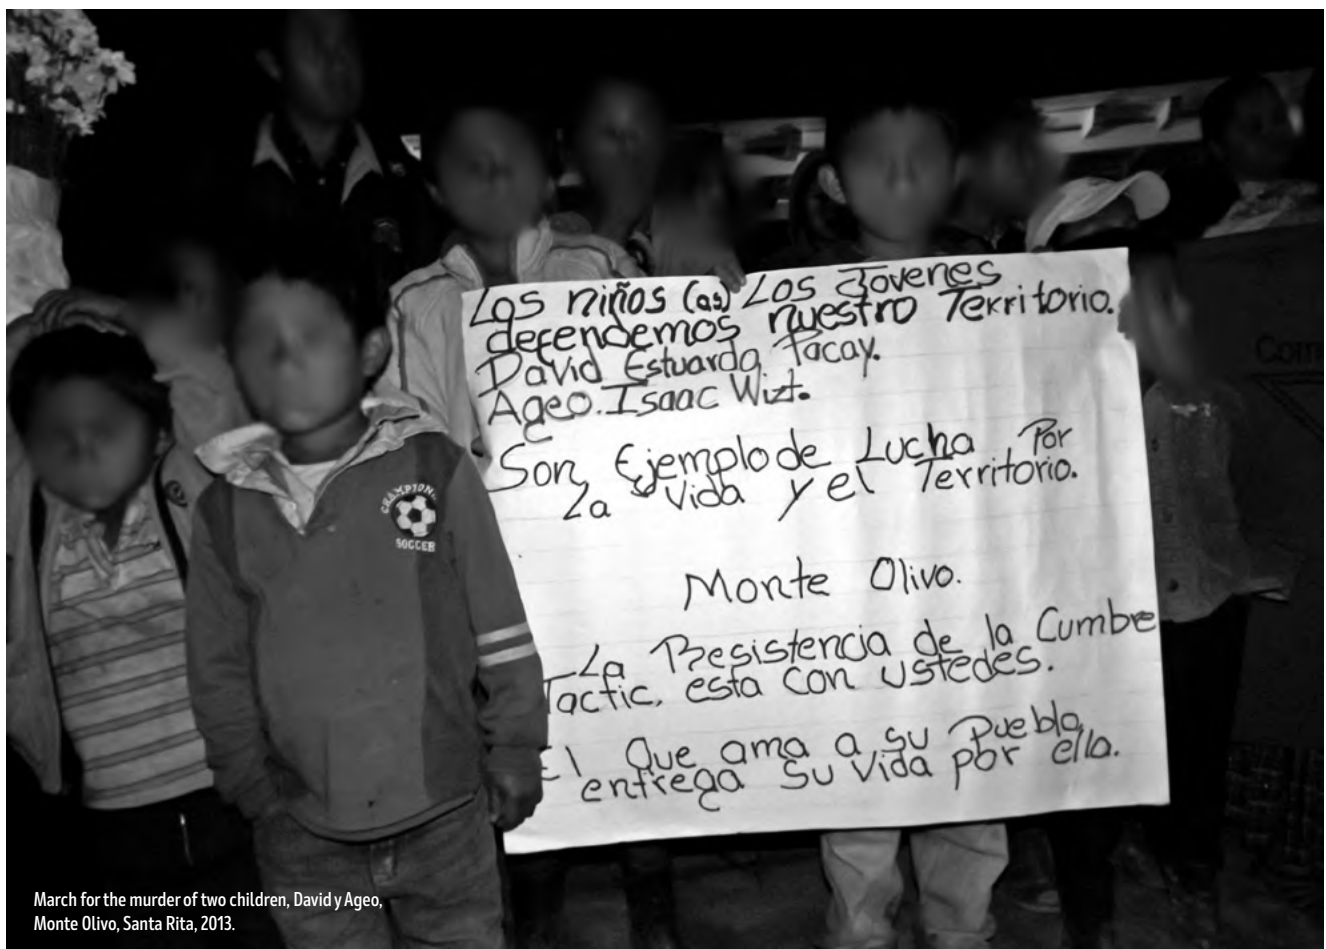 Los niños (as) Los Jovenes
defendemos nuestro Territorio.
David Estuardo Pacay.
Ageo. Isaac Wizt.
Son Ejemplo de Lucha Por
La Vida y el Territorio.
Monte Olivo.
La Resistencia de la Cumbre
Tactic, esta con ustedes.
El Que ama a su Pueblo,
entrega su vida por ella.
CHAMPION
SOCCER
Com
March for the murder of two children, David y Ageo,
Monte Olivo, Santa Rita, 2013.